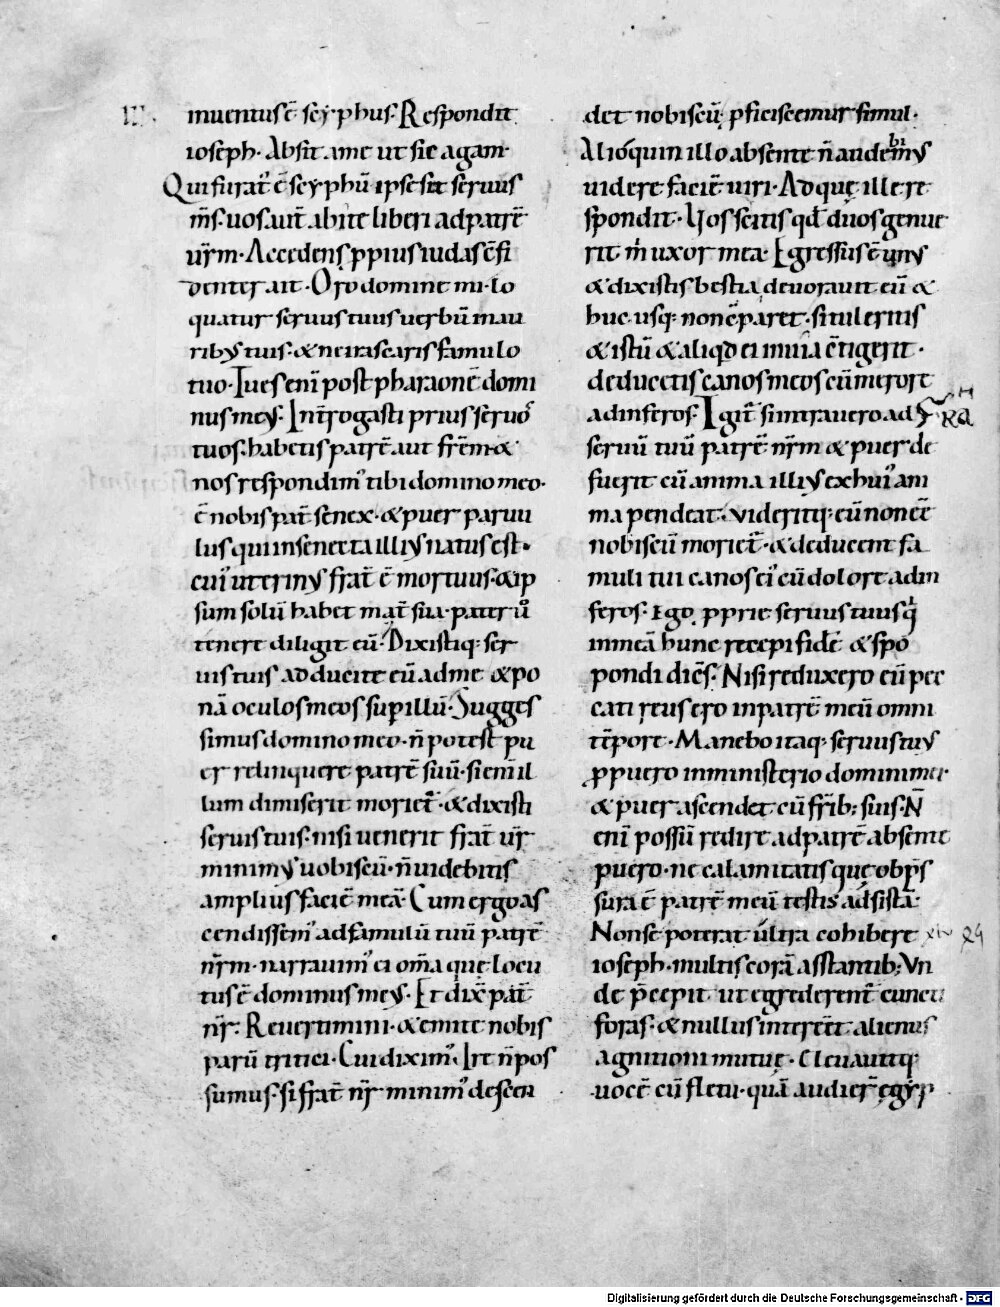 inuentus ē scẏphus. Respondit
ioseph. Absit ame ut sic agam.
Qui furat᷒ ē scẏphū ipse sit seruus
m̄s. uos aut̄ abite liberi ad patrē
ur̄m. Accedens ꝓpius iudas cfi
denter ait. Oro domine mi. lo
quatur seruus tuus uerbū in au
ribꝰ tuis. & ne irascaris famulo
tuo. Tu es eni᷒ post pharaonē domi
nus meꝰ. Int̄rogasti prius seruos
tuos. habetis patrē aut fr̄em. &
nos respondim᷒ tibi domino meo.
ē nobis pat̄ senex. & puer paruu
lus qui in senecta illiꝰ natus est.
cui᷒ uterinꝰ frat̄ ē mortuus. & ip
sum solū habet mat̄ sua. pater u̅
tenere diligit eū. Dixistiq; ser
uis tuis adducite eū ad me & po
nā oculos meos sup illū. Sugges
simus domino meo. n̄ potest pu
er relinquere patrē suū. si eni᷒ il
lum dimiserit moriet᷒. & dixisti
seruis tuis. nisi uenerit frat̄ ur̄
minimꝰ uobiscū. n̄ uidebitis
amplius faciē meā. Cum ergo as
cendissem᷒ ad famulū tuū patrē
nr̄m. narrauim᷒ ei om̄a quę locu
tus ē dominus meꝰ. Et dix̄ pat̄
nr̄. Reuertimini. & emite nobis
parū tritici. Cui dixim᷒. Ire n̄ pos
sumus. si frat̄ nr̄ minim᷒ descen
det nobiscū ꝓficiscemur simul.
Alióquin illo absente n̄ audemꝰ
uidere faciē uiri. Ad quę ille re
spondit. Uos scitis qd̄ duos genue
rit m̄ uxor mea. Egressus ē unꝰ
& dixistis bestia deuorauit eū &
huc usq; non cparet. si tuleritis
& istū & aliqd ei in uia ctigerit.
deducetis canos meos cū merore
ad inferos. Igit᷒ si intrauero ad
seruū tuū patrē nr̄m & puer de
fuerit cū anima illiꝰ ex hui᷒ ani
ma pendeat. uideritq; eū non ēē
nobiscū moriet᷒. & deducent fa
muli tui canos ei᷒ cū dolore ad in
feros. Ego ꝓprie seruus tuus q̇
in meā hunc recepi fidē & spo
pondi dicēs. Nisi reduxero eū pec
cati reus ero in patrē meū omni
tēpore. Manebo itaq; seruus tuꝰ
ꝓ puero in ministerio domini mei.
& puer ascendet cū fr̄ib; suis. N̄
eni᷒ possū redire ad patrē absente
puero. ne calamitatis quę obp̄s
sura ē patrē meū testis adsistā.
Non se poterat ultra cohibere
ioseph. multis corā asstantib; Un
de p̄cepit ut egrederent᷒ cuncti
foras. & nullus interēēt alienus
agnitioni mutuę. Eleuauitq;
uocē cū fletu. quā audier̄ egẏp